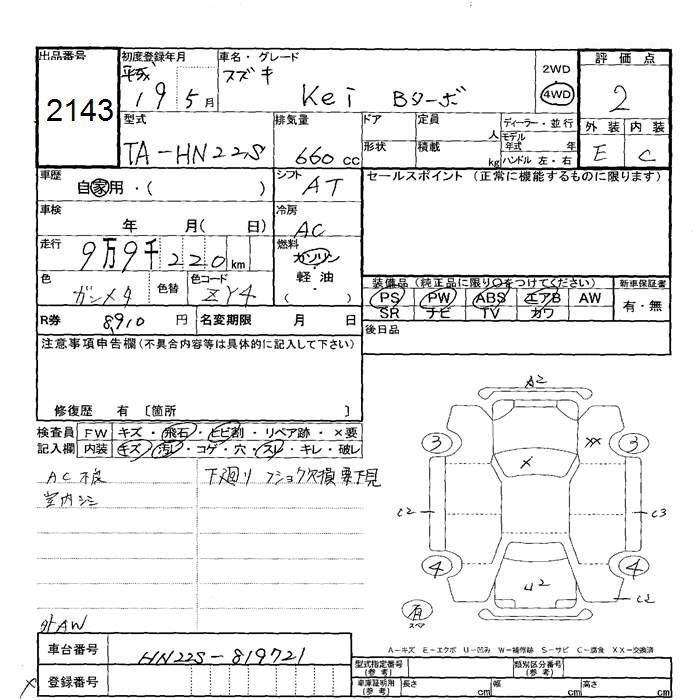 出品番号
2143
初度登録年月
平成 19 5月
車名・グレード
スズキ
Kei Bターボ
2WD
4WD
評価点
2
外装 内装
E C
型式
TA-HN22S
排気量
660 cc
ドア
形状
定員
人
積載
kg
ディーラー・並行
モデル年式 年
ハンドル 左・右
車歴
自家用・( )
シフト
AT
車検
年 月( 日)
冷房
AC
走行
9万9千220km
燃料
ガソリン
・
軽油
( )
色
ガンメタ
色替
色コード
ZY4
R券
8910 円
名変期限 月 日
セールスポイント (正常に機能するものに限ります)
装備品(純正品に限り○をつけてください)
PS PW ABS エアB AW
SR ナビ TV カワ
新車保証書
有・無
後日品
注意事項申告欄(不具合内容等は具体的に記入して下さい)
修復歴 有 [箇所 ]
検査員
記入欄
FW キズ・飛石・ヒビ割・リペア跡・×要
内装 キズ・汚レ・コゲ・穴・スレ・キレ・破レ
AC不良
室内シミ
下廻り フショク欠損要下見
外AW
A2
3
XX
3
X
C2
C3
4
U2
4
C2
有
スペア
A-キズ E-エクボ U-凹み W-補修跡 S-サビ C-腐食 XX-交換済
車台番号
HN22S-819721
登録番号
X
型式指定番号
(参考)
類別区分番号
(参考)
車庫証明用
(参考)
長さ cm
幅 cm
高さ cm